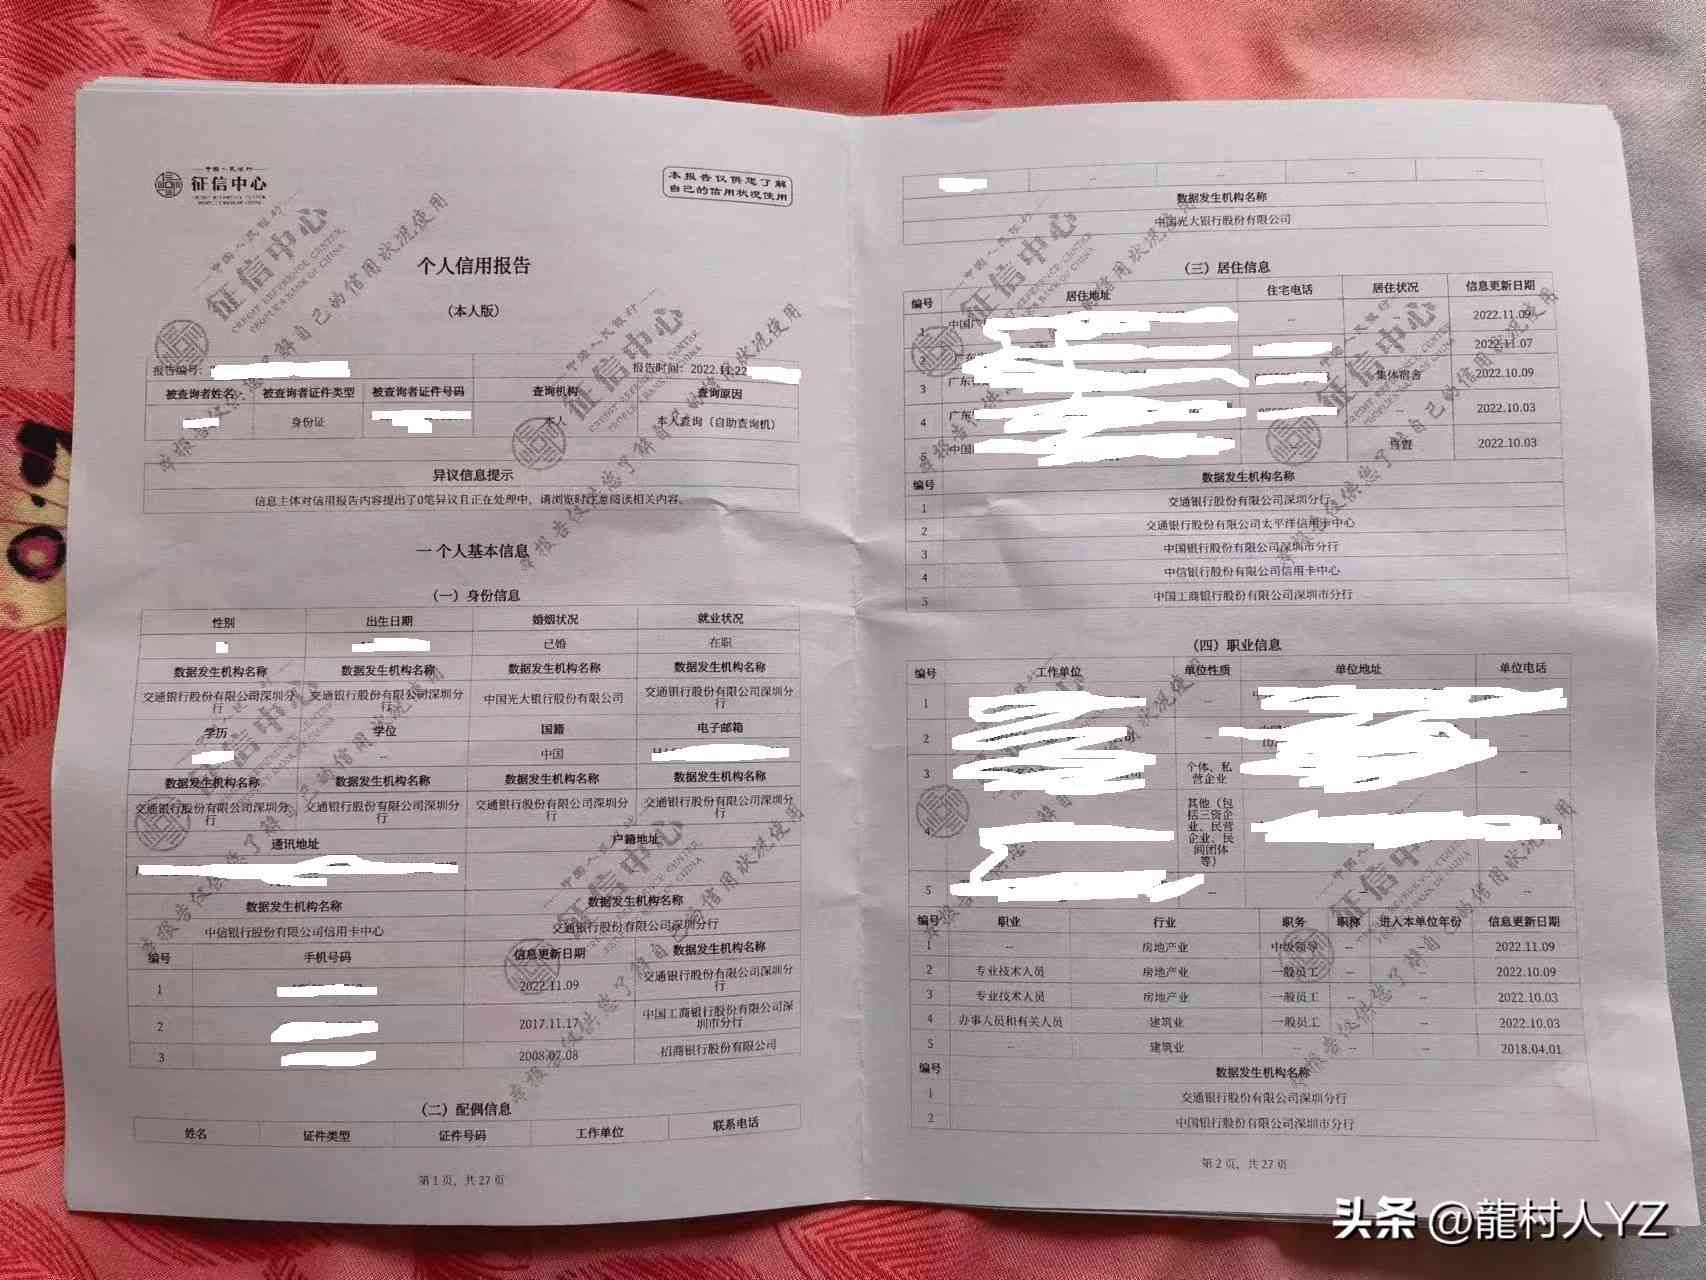 中国人民银行
征信中心
CREDIT REFERENCE CENTER
PEOPLE'S BANK OF CHINA
本报告仅供您了解
自己的信用状况使用
个人信用报告
(本人版)
报告编号: 报告时间: 2022.11.22
被查询者姓名 被查询者证件类型 被查询者证件号码 查询机构 查询原因
身份证 本人 本人查询(自助查询机)
异议信息提示
信息主体对信用报告内容提出了0笔异议且正在处理中,请浏览时注意阅读相关内容。
一 个人基本信息
(一)身份信息
性别 出生日期 婚姻状况 就业状况
已婚 在职
数据发生机构名称 数据发生机构名称 数据发生机构名称 数据发生机构名称
交通银行股份有限公司深圳分行 交通银行股份有限公司深圳分行 中国光大银行股份有限公司 交通银行股份有限公司深圳分行
学历 学位 国籍 电子邮箱
-- 中国
数据发生机构名称 数据发生机构名称 数据发生机构名称 数据发生机构名称
交通银行股份有限公司深圳分行 交通银行股份有限公司深圳分行 交通银行股份有限公司深圳分行 交通银行股份有限公司深圳分行
通讯地址 户籍地址
数据发生机构名称 数据发生机构名称
中信银行股份有限公司信用卡中心 交通银行股份有限公司深圳分行
编号 手机号码 信息更新日期 数据发生机构名称
1 2022.11.09 交通银行股份有限公司深圳分行
2 2017.11.17 中国工商银行股份有限公司深圳市分行
3 2008.07.08 招商银行股份有限公司
(二)配偶信息
姓名 证件类型 证件号码 工作单位 联系电话
第 1 页, 共 27 页
-- -- -- --
数据发生机构名称
中国光大银行股份有限公司
(三)居住信息
编号 居住地址 住宅电话 居住状况 信息更新日期
1 中国广 -- 2022.11.09
2 广东 2022.11.07
3 广东 集体宿舍 2022.10.09
4 广东 -- 2022.10.03
5 中国 自置 2022.10.03
编号 数据发生机构名称
1 交通银行股份有限公司深圳分行
2 交通银行股份有限公司太平洋信用卡中心
3 中国银行股份有限公司深圳市分行
4 中信银行股份有限公司信用卡中心
5 中国工商银行股份有限公司深圳市分行
(四)职业信息
编号 工作单位 单位性质 单位地址 单位电话
1 -- --
2 -- --
3 个体、私营企业 --
4 其他(包括三资企业、民营企业、民间团体等) --
5 -- --
编号 职业 行业 职务 职称 进入本单位年份 信息更新日期
1 -- 房地产业 中级领导 -- -- 2022.11.09
2 专业技术人员 房地产业 一般员工 -- -- 2022.10.09
3 专业技术人员 房地产业 一般员工 -- -- 2022.10.03
4 办事人员和有关人员 建筑业 一般员工 -- -- 2022.10.03
5 -- 建筑业 -- -- -- 2018.04.01
编号 数据发生机构名称
1 交通银行股份有限公司深圳分行
2 中国银行股份有限公司深圳市分行
第 2 页, 共 27 页
头条 @龍村人YZ